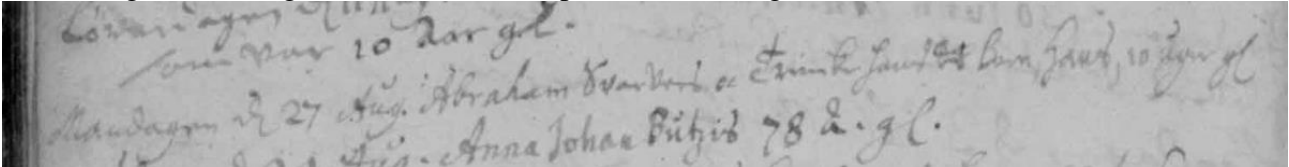 Løverdagen
som var 10 Aar gl.
Mandagen d 27 Aug. Abraham Svarvers oc Trinike Hans barn, Hans, 10 uger gl
Aug. Anna Johan Butzis 78 A. gl.